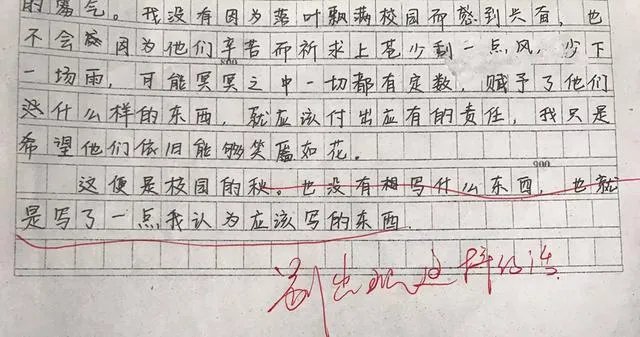 的霭气。我没有因为落叶飘满校园而感到共育，也
不会因为他们辛苦而祈求上苍少刮一点风，少下
800
一场雨，可能冥冥之中一切都有定数，赋予了他们
什么样的东西，就应该付出应有的责任，我只是
希望他们依旧能够笑靥如花。
900
这便是校园的秋。也没有想写什么东西，也就
是写了一点我认为应该写的东西.
别出现这样的话